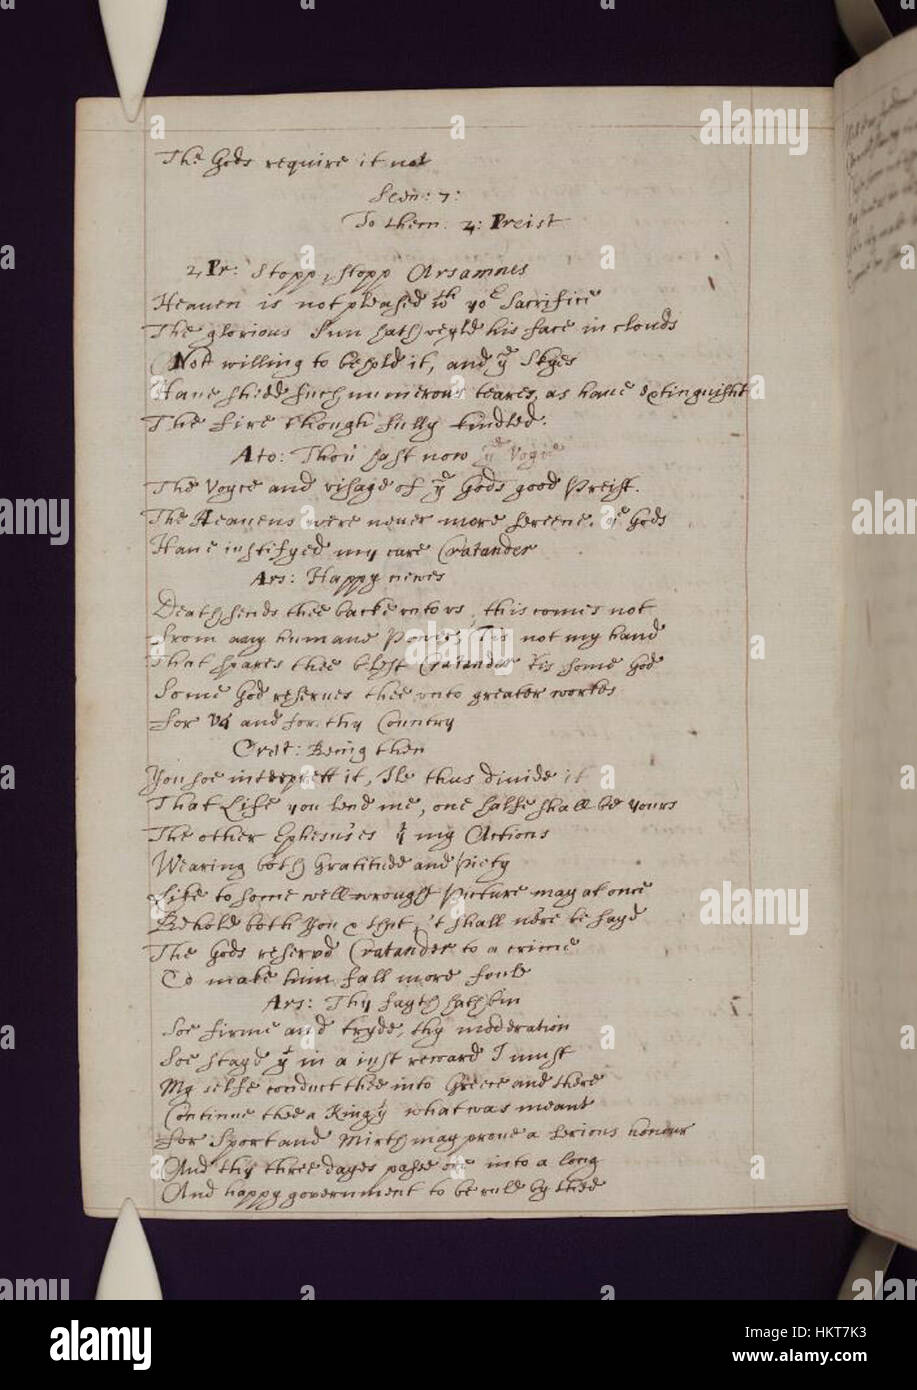 The Gods require it not
Scen: 7:
To them. 4: Preist
4 Pr: Stopp, stopp Arsamnes
Heaven is not pleased wth yor Sacrifice
The glorious Sun hath veyld his face in clouds
Nott willing to behold it, and ye Skyes
Haue shedd such numerous teares, as haue extinguisht
The fire though fully kindled.
Ato: Thou hast now ye Voyce
The Voyce and visage of ye Gods good Preist.
The Heauens were neuer more sereene. ye Gods
Haue iustifyed my care Cratander
Ars: Happy newes
Death sends thee backe vnto vs, this comes not
From any humane Power, Tis not my hand
That spares thee blest Cratander tis some God
Some God reserues thee vnto greater workes
For vs and for thy Country
Crat: Being then
You soe interprett it, Ile thus divide it
That Life you lend me, one halfe shall be yours
The other Ephesus'es yt my Actions
Wearing both Gratitude and Piety
Like to some well-wrought Picture may at once
Behold both You & that, 't shall nêre be sayd
The Gods reservd Cratander to a crime
To make him fall more foule
Ars: Thy fayth hath bin
Soe firme and tryde, thy moderation
Soe stayd yt in a iust reward I must
My selfe conduct thee into Greece and there
Continue thee a King yt what was meant
For Sport and Mirth may proue a serious honour
And thy three dayes passe one into a long
And happy government to be ruld by thee
alamy
alamy
alamy
Image ID: HKT7K3
www.alamy.com